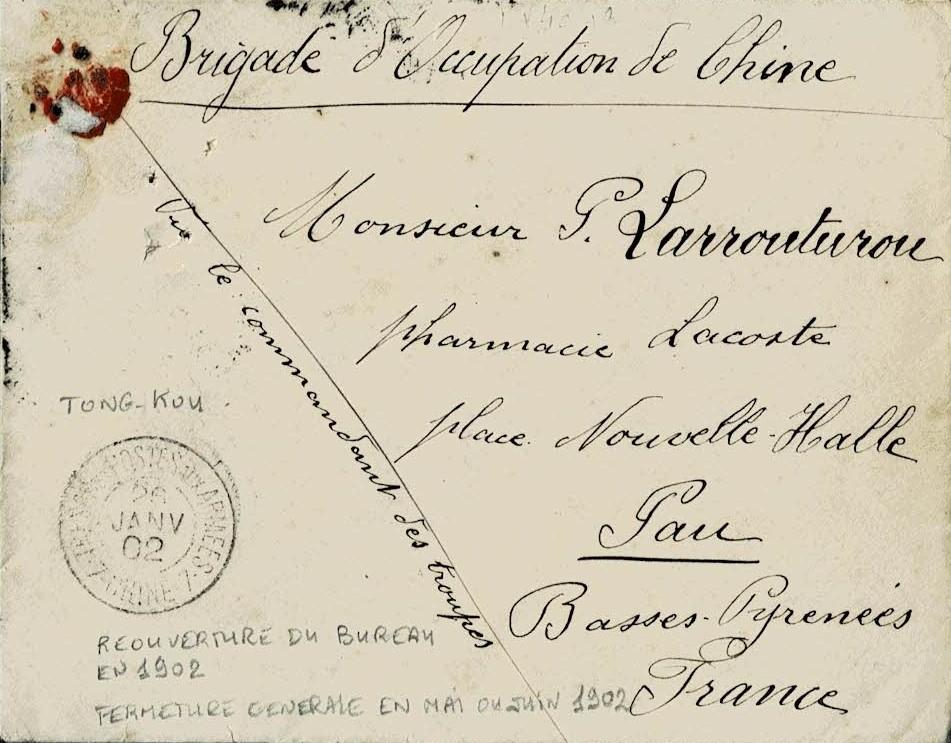 Brigade d'Occupation de Chine
Monsieur P. Larrouturou
pharmacie Lacoste
place Nouvelle-Halle
Pau
Basses-Pyrenées
France
Vu le commandant des troupes
TONG-KOU
POSTES AUX ARMEES
26
JANV
02
CHINE
REOUVERTURE DU BUREAU
EN 1902
FERMETURE GENERALE EN MAI OU JUIN 1902